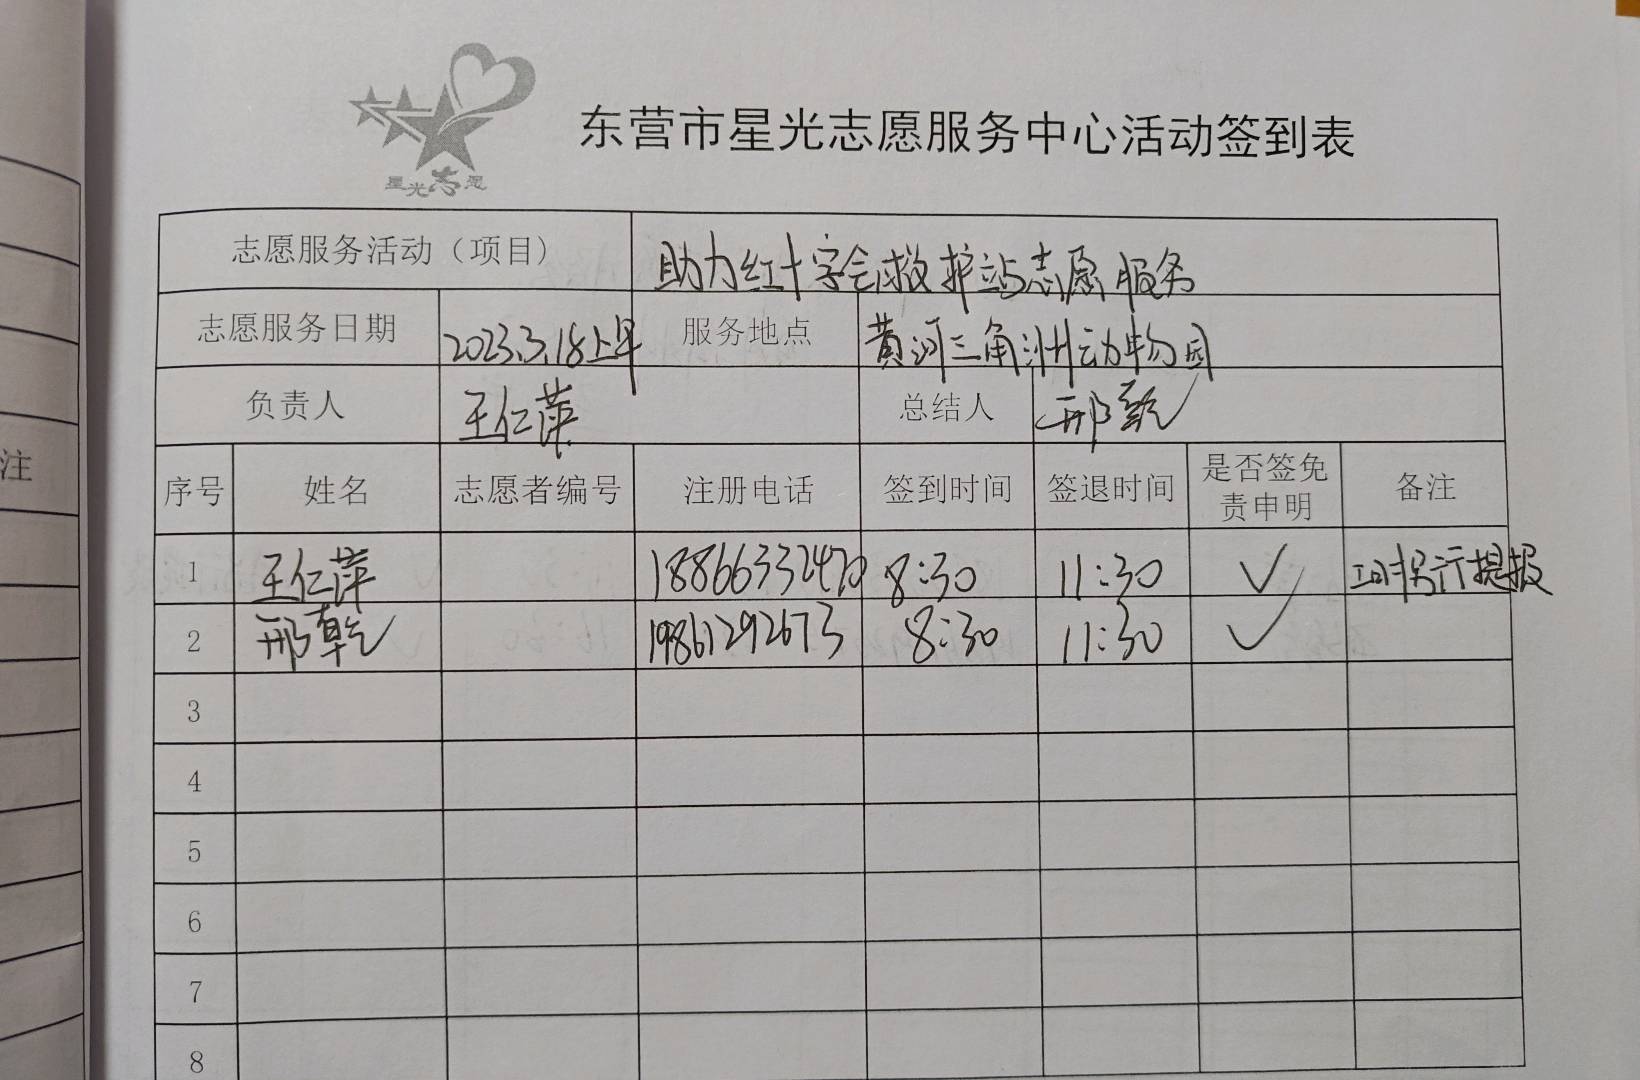 星光志愿
东营市星光志愿服务中心活动签到表
志愿服务活动（项目） 助力红十字会救护站志愿服务
志愿服务日期 2023.3.18上午 服务地点 黄河三角洲动物园
负责人 王仁萍 总结人 邢乾
注
序号 姓名 志愿者编号 注册电话 签到时间 签退时间 是否签免责申明 备注
1 王仁萍 18866332470 8:30 11:30 ✓
2 邢乾 19861292673 8:30 11:30 ✓
3
4
5
6
7
8